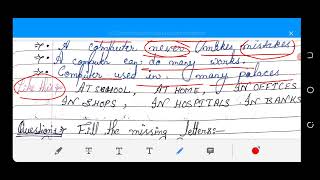 A computer never makes mistakes
A computer can do many works.
Computer used in many palaces
Like this:- AT SCHOOL, AT HOME, IN OFFICES
IN SHOPS, IN HOSPITALS IN BANKS
Questions:- Fill the missing letters:-